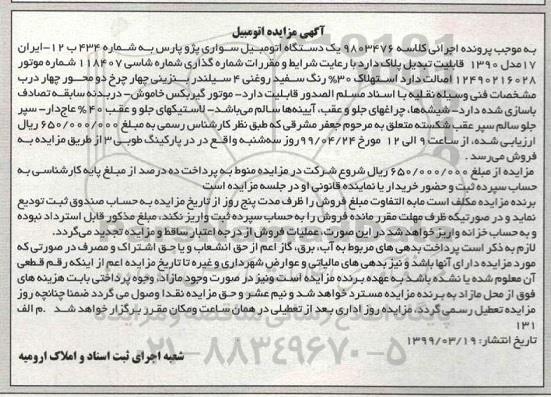 آگهی مزایده اتومبیل
به موجب پرونده اجرائی کلاسه ۹۸۰۳۴۷۶ یک دستگاه اتومبیل سواری پژو پارس به شماره ۴۳۴ ب ۱۲-ایران
۱۷مدل ۱۳۹۰ قابلیت تبدیل پلاک دارد با رعایت شرایط و مقررات شماره گذاری شماره شاسی ۱۱۸۴۰۷ شماره موتور
۱۲۴۹۰۲۱۶۰۲۸ اصالت دارد استهلاک ۳۰% رنگ سفید روغنی ۴ سیلندر بنزینی چهار چرخ دو محور چهار درب
مشخصات فنی وسیله نقلیه با اسناد مسلم الصدور قابلیت دارد- موتور گیربکس خاموش- دربدنه سابقه تصادف
باسازی شده دارد- شیشه‌ها، چراغهای جلو و عقب، آیینه‌ها سالم می‌باشد- لاستیکهای جلو و عقب ۴۰% عاج‌دار- سپر
جلو سالم سپر عقب شکسته متعلق به مرحوم جعفر مشرقی که طبق نظر کارشناس رسمی به مبلغ ۶۵۰/۰۰۰/۰۰۰ ریال
ارزیابی شده، از ساعت ۹ الی ۱۲ مورخ ۹۹/۰۴/۲۴روز سه‌شنبه واقع در در پارکینگ طوبی ۳از طریق مزایده به
فروش می‌رسد.
مزایده از مبلغ ۶۵۰/۰۰۰/۰۰۰ ریال شروع شرکت در مزایده منوط به پرداخت ده درصد از مبلغ پایه کارشناسی به
حساب سپرده ثبت و حضور خریدار یا نماینده قانونی او در جلسه مزایده است
برنده مزایده مکلف است مابه التفاوت مبلغ فروش را ظرف مدت پنج روز از تاریخ مزایده به حساب صندوق ثبت تودیع
نماید و در صورتیکه ظرف مهلت مقرر مانده فروش را به حساب سپرده ثبت واریز نکند، مبلغ مذکور قابل استرداد نبوده
و به حساب خزانه واریز خواهد شد در این صورت، عملیات فروش از درجه اعتبار ساقط و مزایده تجدید می‌گردد.
لازم به ذکر است پرداخت بدهی های مربوط به آب، برق، گاز اعم از حق انشعاب و یا حق اشتراک و مصرف در صورتی که
مورد مزایده دارای آنها باشد و نیز بدهی های مالیاتی و عوارض شهرداری و غیره تا تاریخ مزایده اعم از اینکه رقم قطعی
آن معلوم شده یا نشده باشد به عهده برنده مزایده است ونیز در صورت وجود مازاد، وجوه پرداختی بابت هزینه های
فوق از محل مازاد به برنده مزایده مسترد خواهد شد و نیم عشر و حق مزایده نقدا وصول می گردد ضمنا چنانچه روز
مزایده تعطیل رسمی گردد، مزایده روز اداری بعد از تعطیلی در همان ساعت ومکان مقرر برگزار خواهد شد .م الف
۱۳۱
تاریخ انتشار: ۱۳۹۹/۰۳/۱۹
شعبه اجرای ثبت اسناد و املاک ارومیه
۰۲۱-۸۸۳۴۹۶۷۰-۵